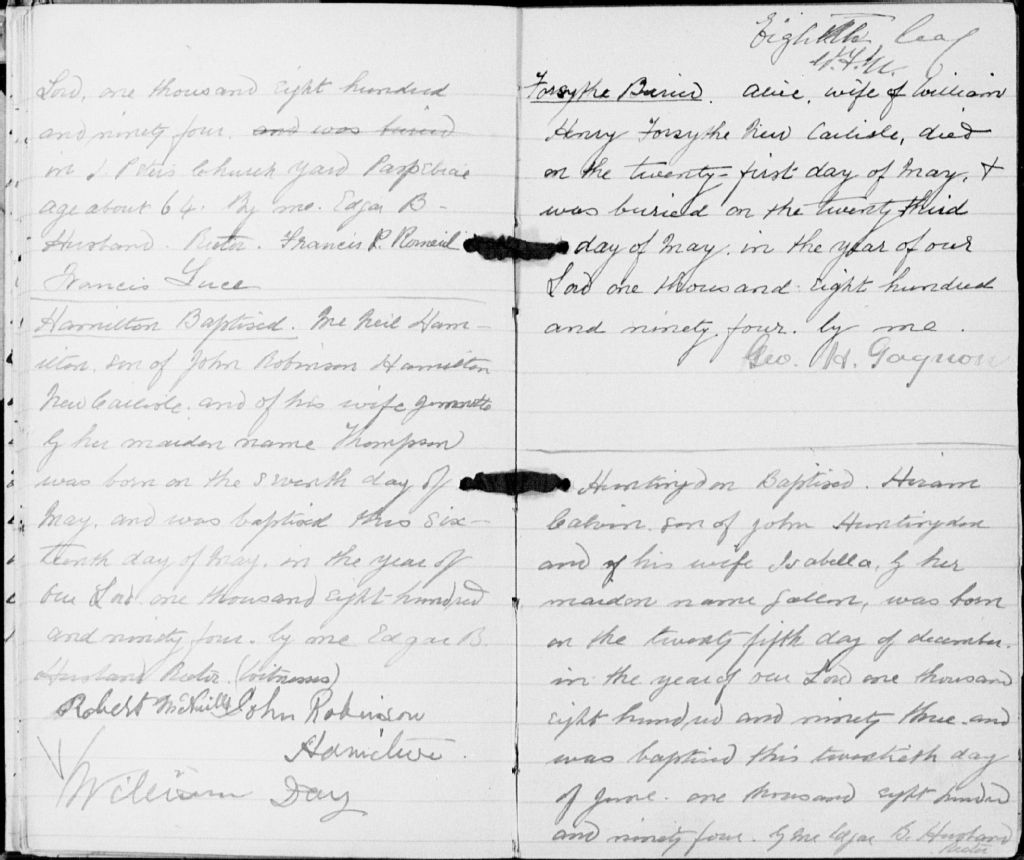 Lord, one thousand Eight hundred
and ninety four. and was buried
in S. Peters Church yard Paspebiac
age about 64. By me. Edgar B-
Husband. Rector. Francis P. Romeril
Francis Luce
Hamilton Baptised. McNeil Ham-
ilton. son of John Robinson Hamilton
New Carlisle. and of his wife
by her maiden name Thompson
was born on the Seventh day of
May. and was baptised this six-
teenth day of May. in the year of
our Lord one thousand Eight hundred
and ninety four. by me Edgar B.
Husband Rector. (Witnesses)
Robert McNeill John Robinson
Hamilton.
William Day
Eighth leaf
Forsythe Buried. Alice, wife of William
Henry Forsythe New Carlisle, died
on the twenty-first day of May, &
was buried on the twenty third
day of May. in the year of our
Lord one thousand Eight hundred
and ninety four. by me.
Geo. H. Gagnon
Huntingdon Baptised. Hiram
Calvin. son of John Huntingdon
and of his wife Isabella. by her
maiden name, was born
on the twenty fifth day of december.
in the year of our Lord one thousand
Eight hundred and ninety three. and
was baptised this twentieth day
of June. one thousand Eight hundred
and ninety four. by me Edgar B. Husband
Rector